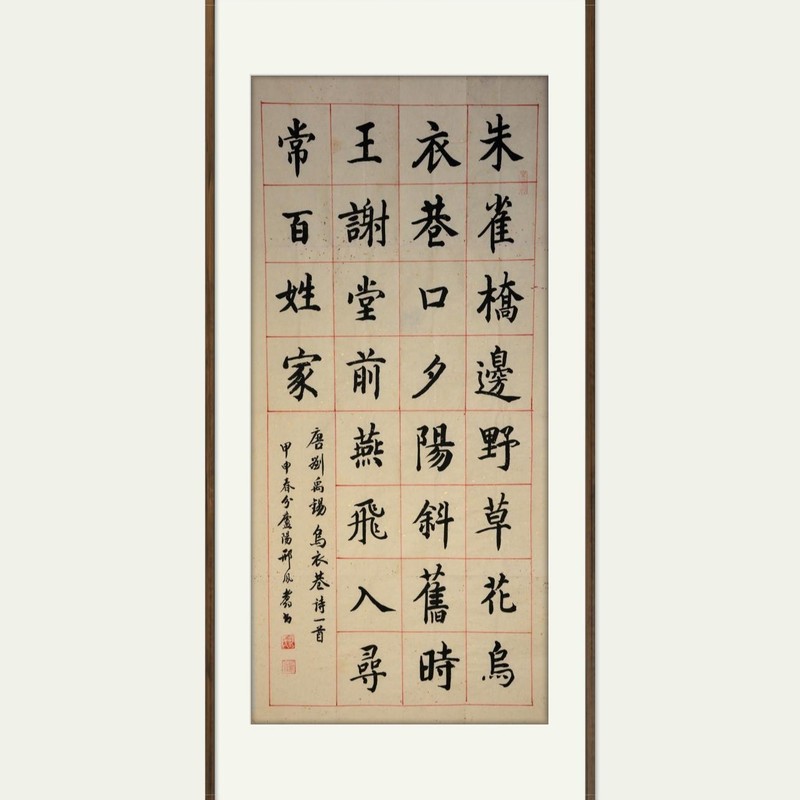 朱雀橋邊野草花烏
衣巷口夕陽斜舊時
王謝堂前燕飛入尋
常百姓家
唐劉禹錫烏衣巷詩一首
甲申春分慶陽邢風麟書